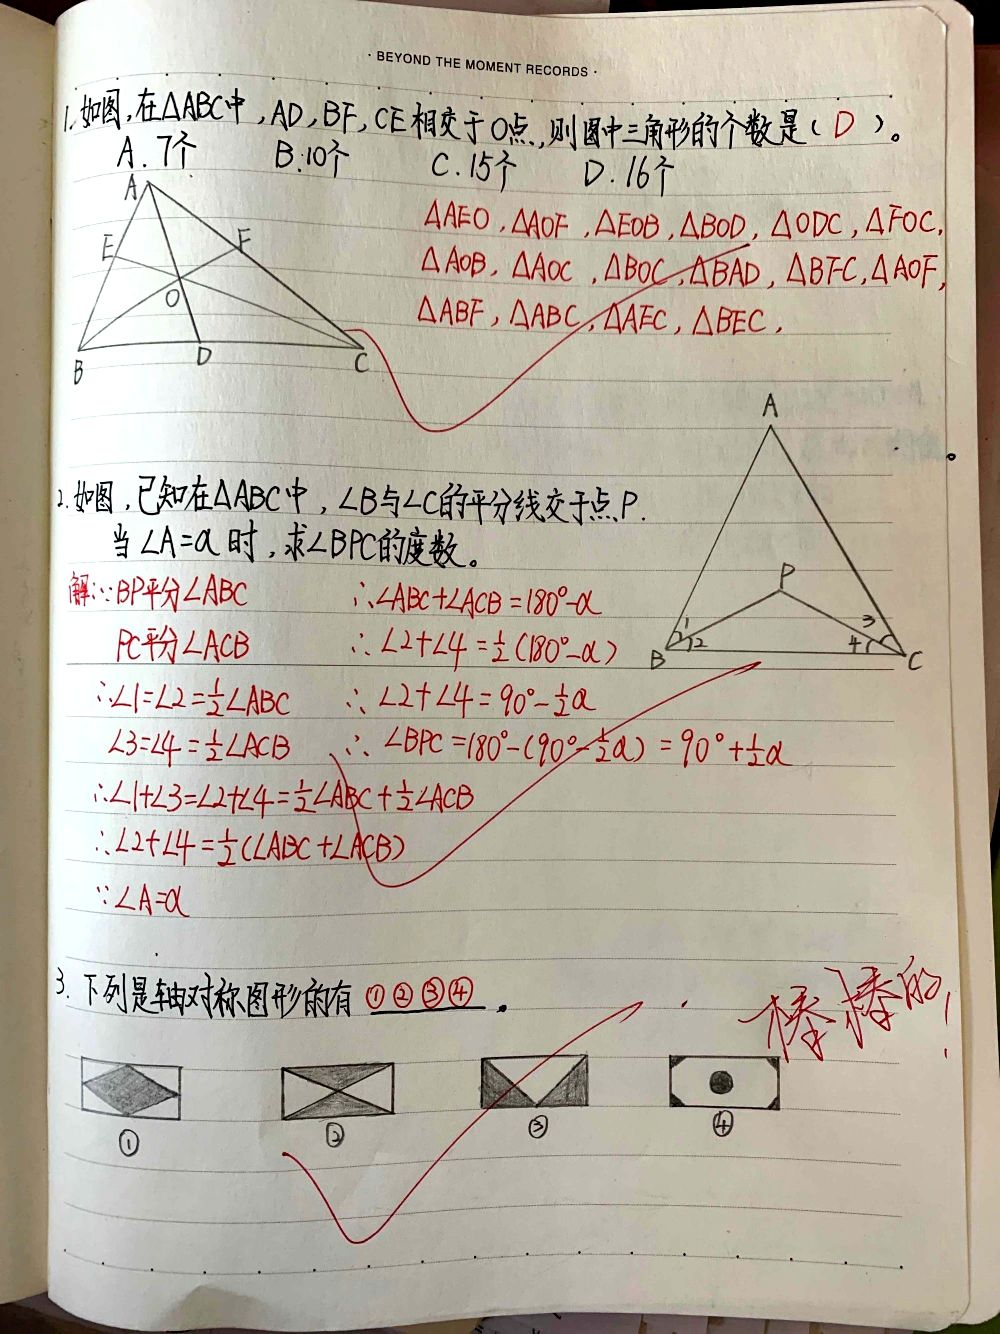 · BEYOND THE MOMENT RECORDS ·
1. 如图,在△ABC中,AD,BF,CE相交于O点,则图中三角形的个数是( D )。
A. 7个 B. 10个 C. 15个 D. 16个
△AEO,△AOF,△EOB,△BOD,△ODC,△FOC,
△AOB,△AOC,△BOC,△BAD,△BFC,△AOF,
△ABF,△ABC,△AEC,△BEC,
A
E
F
O
B
D
C
2. 如图,已知在△ABC中,∠B与∠C的平分线交于点P.
当∠A=α时,求∠BPC的度数。
A
P
1
2
3
4
B
C
解:∵BP平分∠ABC
PC平分∠ACB
∴∠1=∠2=½∠ABC
∠3=∠4=½∠ACB
∴∠1+∠3=∠2+∠4=½∠ABC+½∠ACB
∴∠2+∠4=½(∠ABC+∠ACB)
∵∠A=α
∴∠ABC+∠ACB=180°-α
∴∠2+∠4=½(180°-α)
∴∠2+∠4=90°-½α
∴∠BPC=180°-(90°-½α)=90°+½α
3. 下列是轴对称图形的有 ①②③④ .
棒棒的!
① ② ③ ④